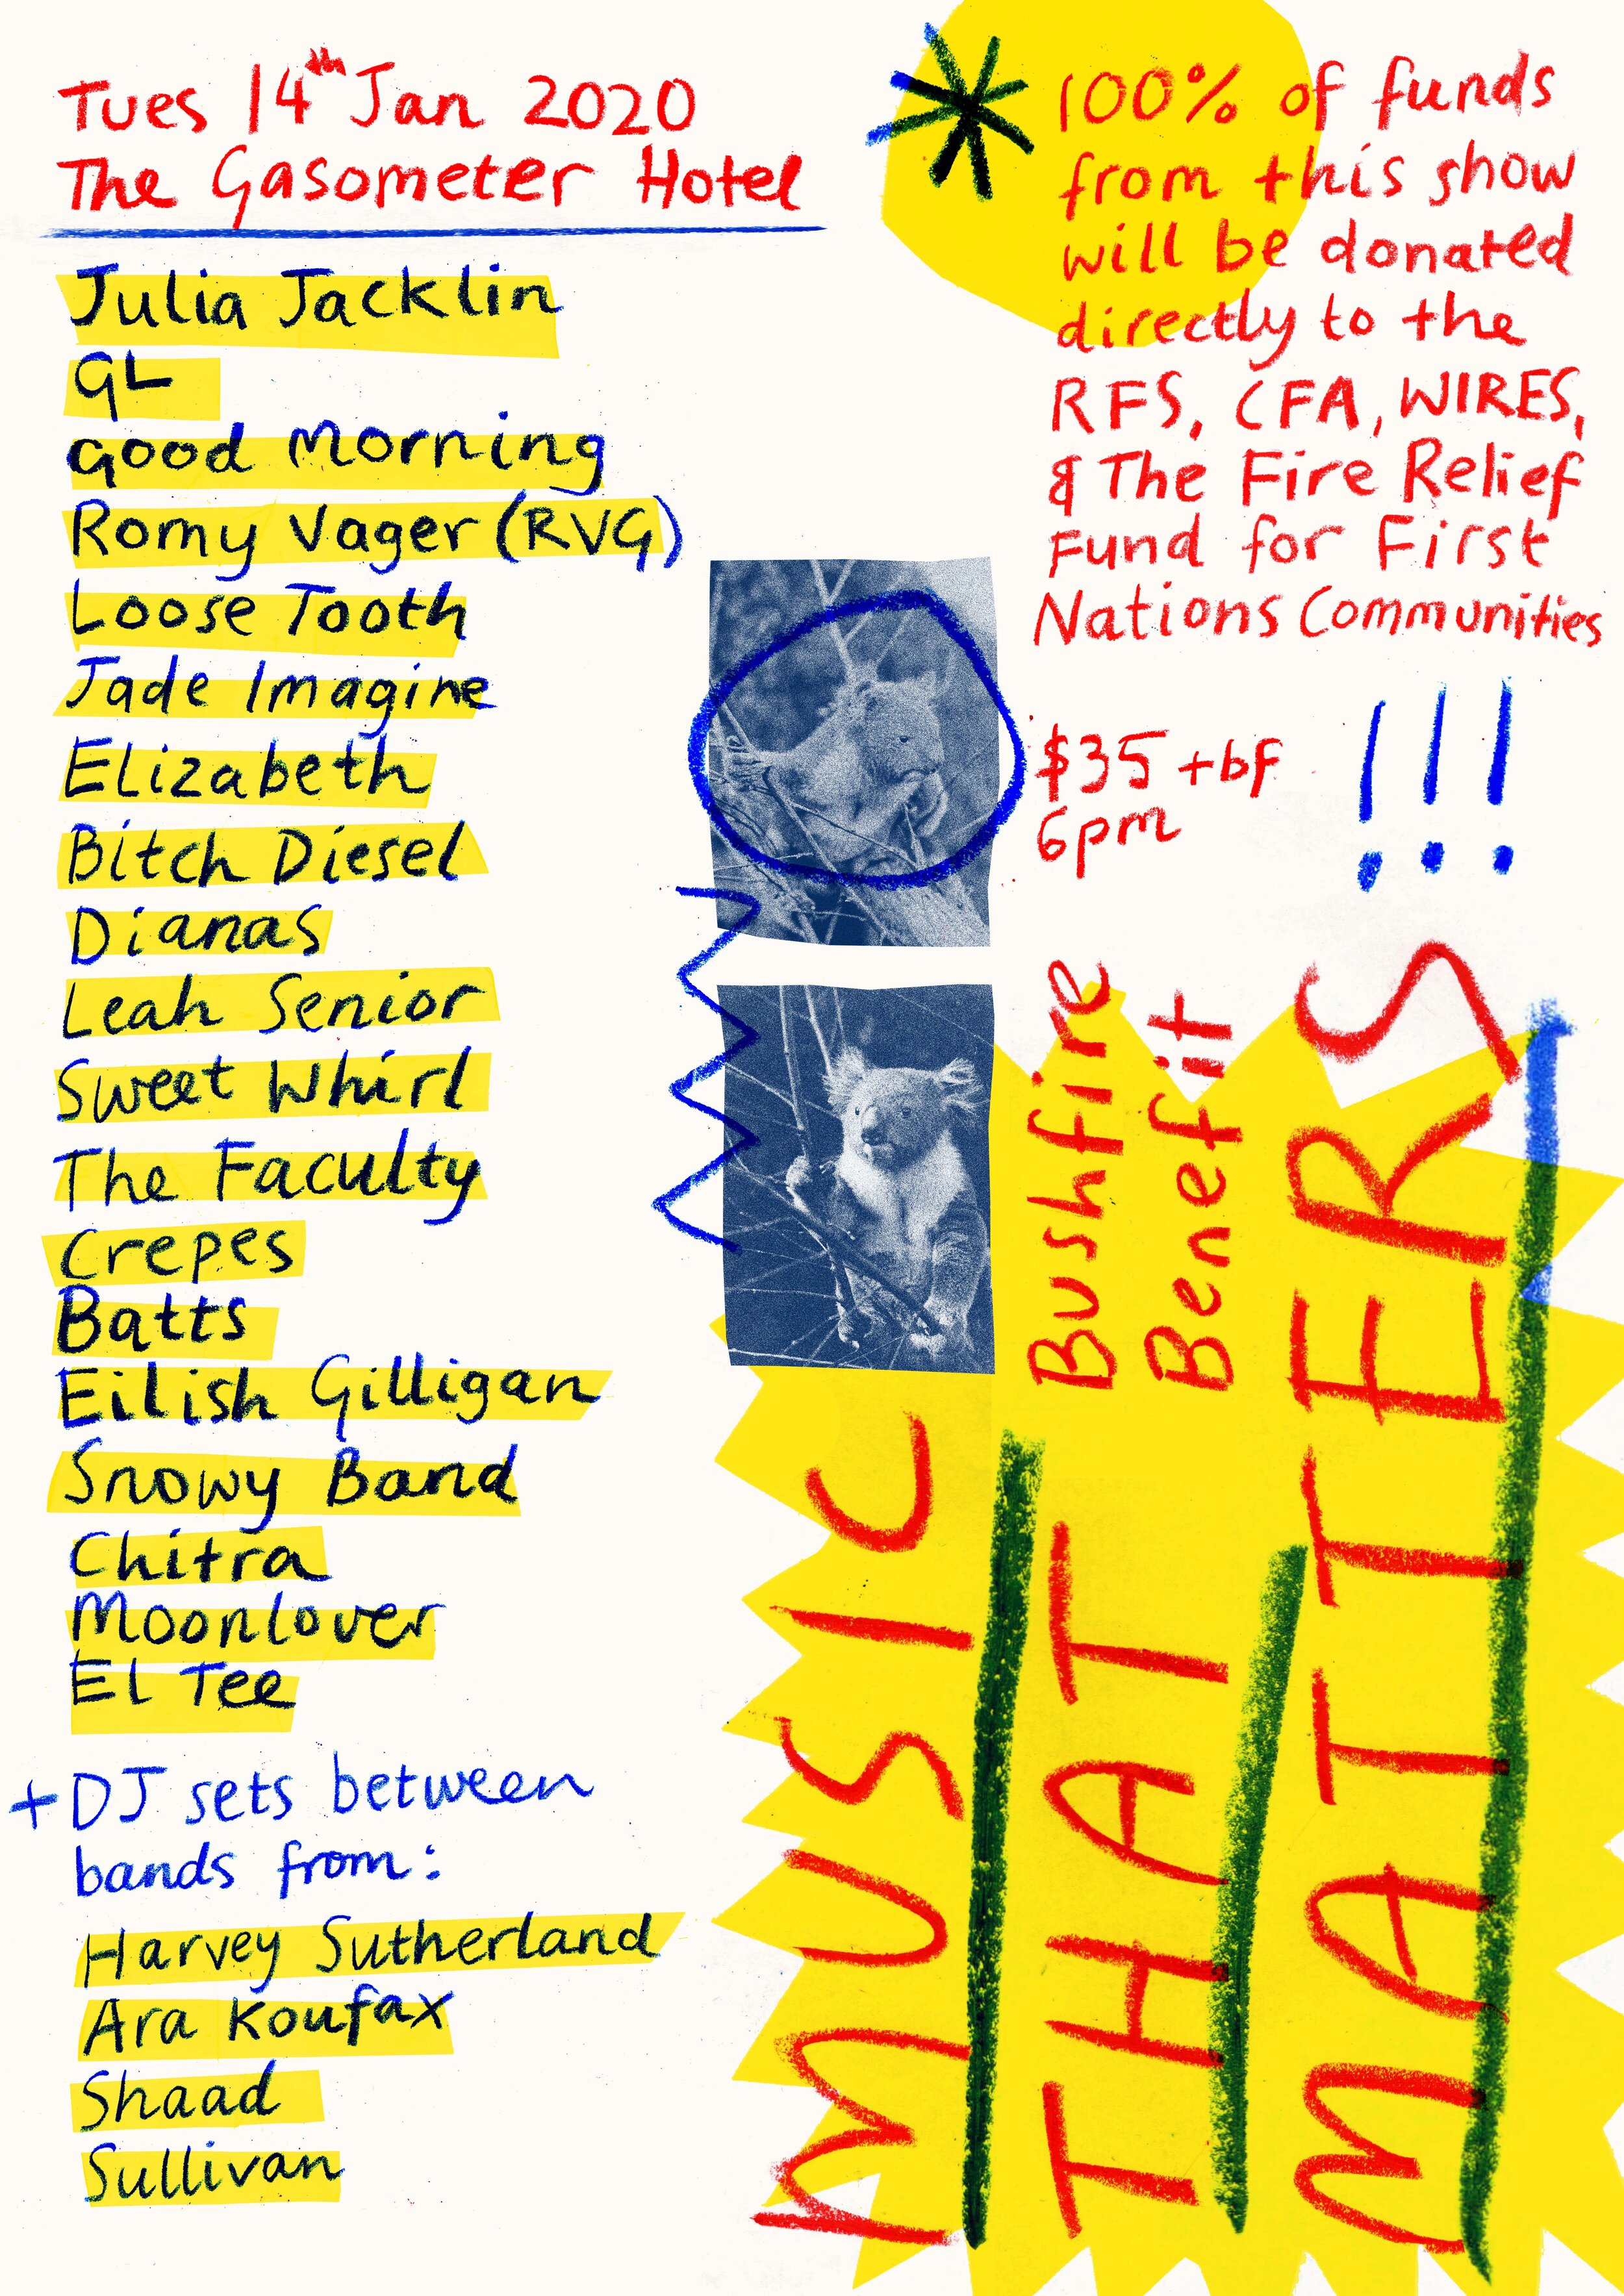 Tues 14th Jan 2020
The Gasometer Hotel
Julia Jacklin
GL
Good Morning
Romy Vager (RVG)
Loose Tooth
Jade Imagine
Elizabeth
Bitch Diesel
Dianas
Leah Senior
Sweet Whirl
The Faculty
Crepes
Batts
Eilish Gilligan
Snowy Band
Chitra
Moonlover
El Tee
+ DJ sets between
bands from:
Harvey Sutherland
Ara Koufax
Shaad
Sullivan
* 100% of funds
from this show
will be donated
directly to the
RFS, CFA, WIRES,
& The Fire Relief
Fund for First
Nations Communities
!!!
$35 +bf
6pm
MUSIC
THAT
MATTERS
Bushfire
Benefit